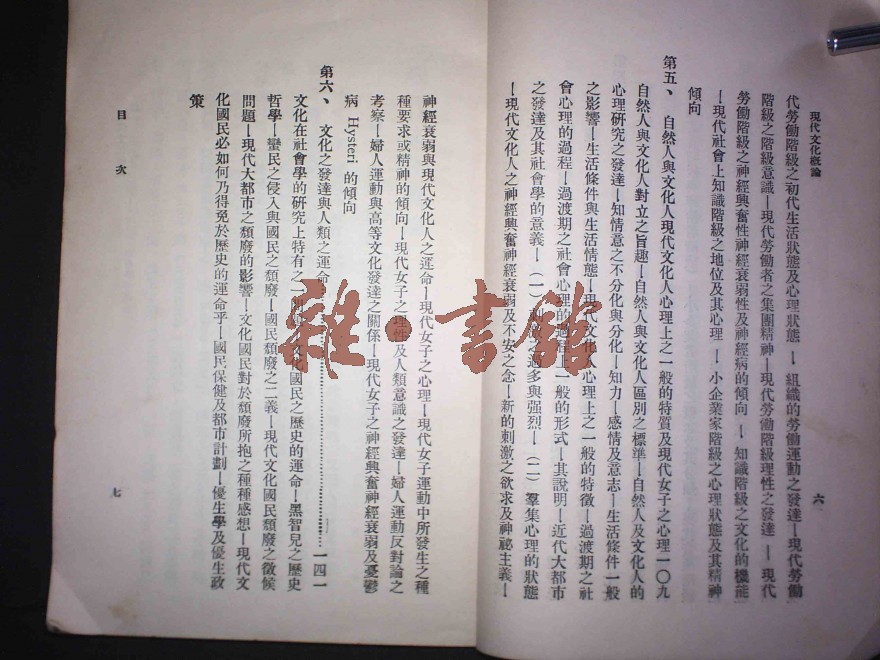 現代文化概論
六
代勞働階級之初代生活狀態及心理狀態—組織的勞働運動之發達—現代勞働
階級之階級意識—現代勞働者之集團精神—現代勞働階級理性之發達—現代
勞働階級之神經興奮性神經衰弱性及神經病的傾向—知識階級之文化的機能
—現代社會上知識階級之地位及其心理—小企業家階級之心理狀態及其精神
傾向
第五、自然人與文化人現代文化人心理上之一般的特質及現代女子之心理一〇九
自然人與文化人對立之旨趣—自然人與文化人區別之標準—自然人及文化人的
心理研究之發達—知情意之不分化與分化—知力—感情及意志—生活條件一般
之影響—生活條件與生活情態—現代文化人心理上之一般的特徵—過渡期之社
會心理的過程—過渡期之社會心理的過程上一般的形式—其說明—近代大都市
之發達及其社會學的意義—(一)刺激之過多與强烈—(二)羣集心理的狀態
—現代文化人之神經興奮神經衰弱及不安之念—新的刺激之欲求及神祕主義—
神經衰弱與現代文化人之運命—現代女子之心理—現代女子運動中所發生之種
種要求或精神的傾向—現代女子之理性及人類意識之發達—婦人運動反對論之
考察—婦人運動與高等文化發達之關係—現代女子之神經興奮神經衰弱及憂鬱
病 Hysteri 的傾向
第六、文化之發達與人類之運命……一四一
文化在社會學的研究上特有之一問題—文化國民之歷史的運命—黑智兒之歷史
哲學—蠻民之侵入與國民之頹廢—國民頹廢之二義—現代文化國民頹廢之徵候
問題—現代大都市之頹廢的影響—文化國民對於頹廢所抱之種種感想—現代文
化國民必如何乃得免於歷史的運命乎—國民保健及都市計劃—優生學及優生政
策
目次
七
雜·書館